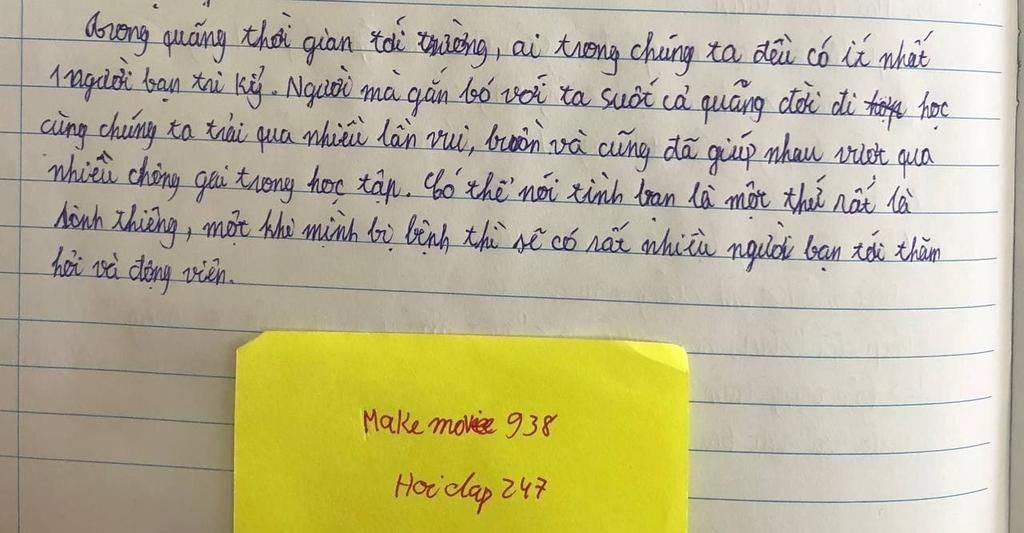 Trong quãng thời gian tới trường, ai trong chúng ta đều có ít nhất
1 người bạn tri kỷ. Người mà gắn bó với ta suốt cả quãng đời đi học
cùng chúng ta trải qua nhiều lần vui, buồn và cũng đã giúp nhau vượt qua
nhiều chông gai trong học tập. Có thể nói tình bạn là một thứ rất là
linh thiêng, một khi mình bị bệnh thì sẽ có rất nhiều người bạn tới thăm
hỏi và động viên.
Make movie 938
Hoi dap 247